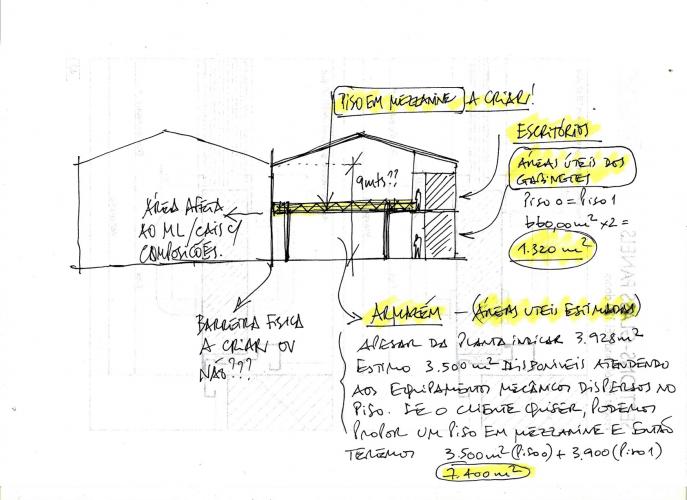 PISO EM MEZZANINE A CRIAR!
ESCRITÓRIOS
ÁREAS ÚTEIS DOS
GABINETES
PISO 0 = PISO 1
660,00 m² x2 =
1.320 m²
9 mts??
ÁREA AFETA
AO ML/CAIS C/
COMPOSIÇÕES.
BARREIRA FISICA
A CRIAR OU
NÃO???
ARMAZÉM — (ÁREAS UTEIS ESTIMADAS)
APESAR DA PLANTA INDICAR 3.928 m²
ESTIMO 3.500 m² DISPONIVEIS ATENDENDO
AOS EQUIPAMENTOS MECÂNICOS DISPERSOS NO
PISO. SE O CLIENTE QUISER, PODEMOS
PROPOR UM PISO EM MEZZANINE E ENTÃO
TEREMOS 3.500 m² (PISO 0) + 3.900 (PISO 1)
7.400 m²